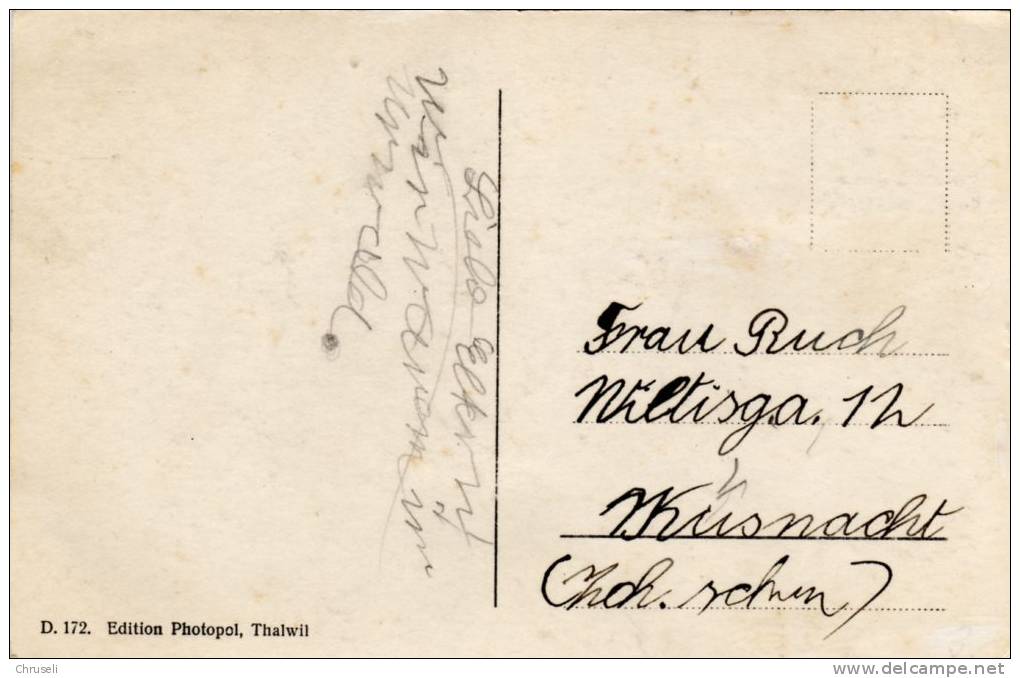 Liebe Elters!
Wir waren im
Frau Ruch
Wiltisga. 12
Küsnacht
(Zch. schweiz)
D. 172. Edition Photopol, Thalwil
Chruseli
www.delcampe.net